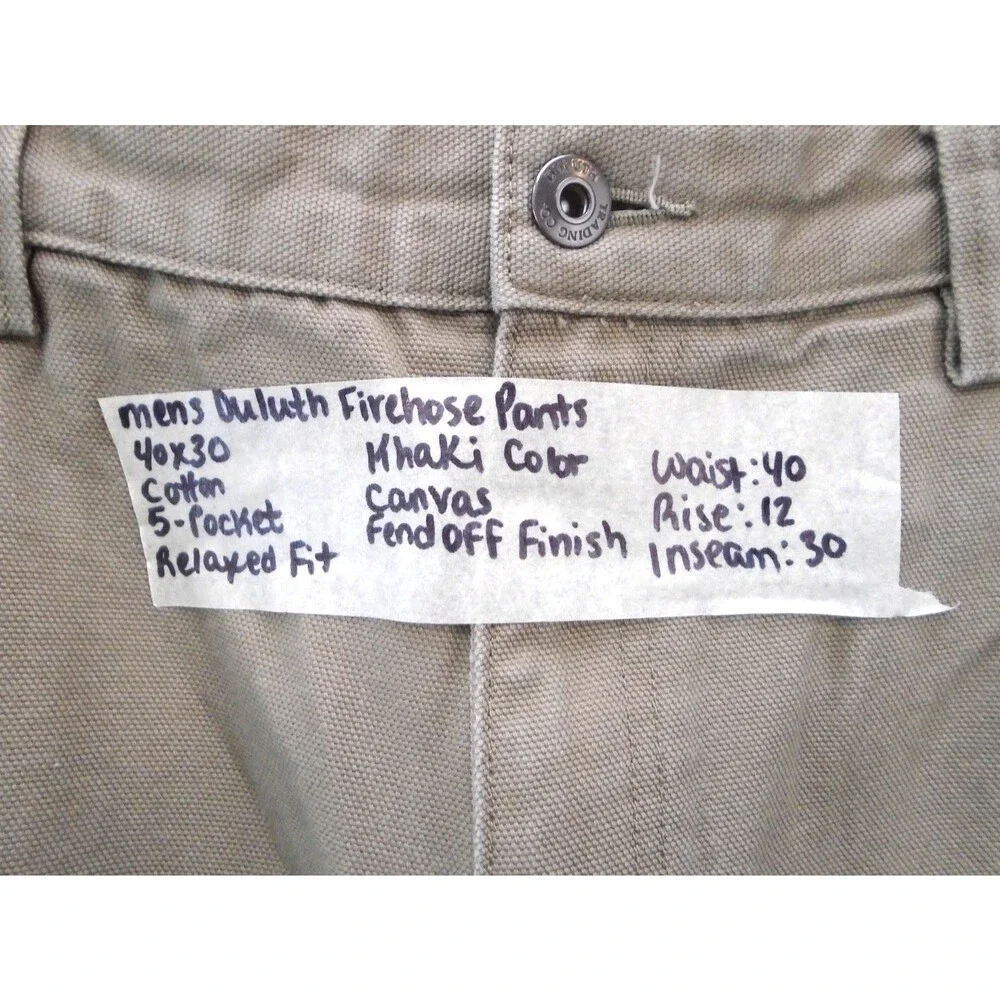 DULUTH TRADING CO.
mens Duluth Firehose Pants
40x30
Cotton
5-Pocket
Relaxed Fit
Khaki Color
Canvas
Fend Off Finish
Waist: 40
Rise: 12
Inseam: 30